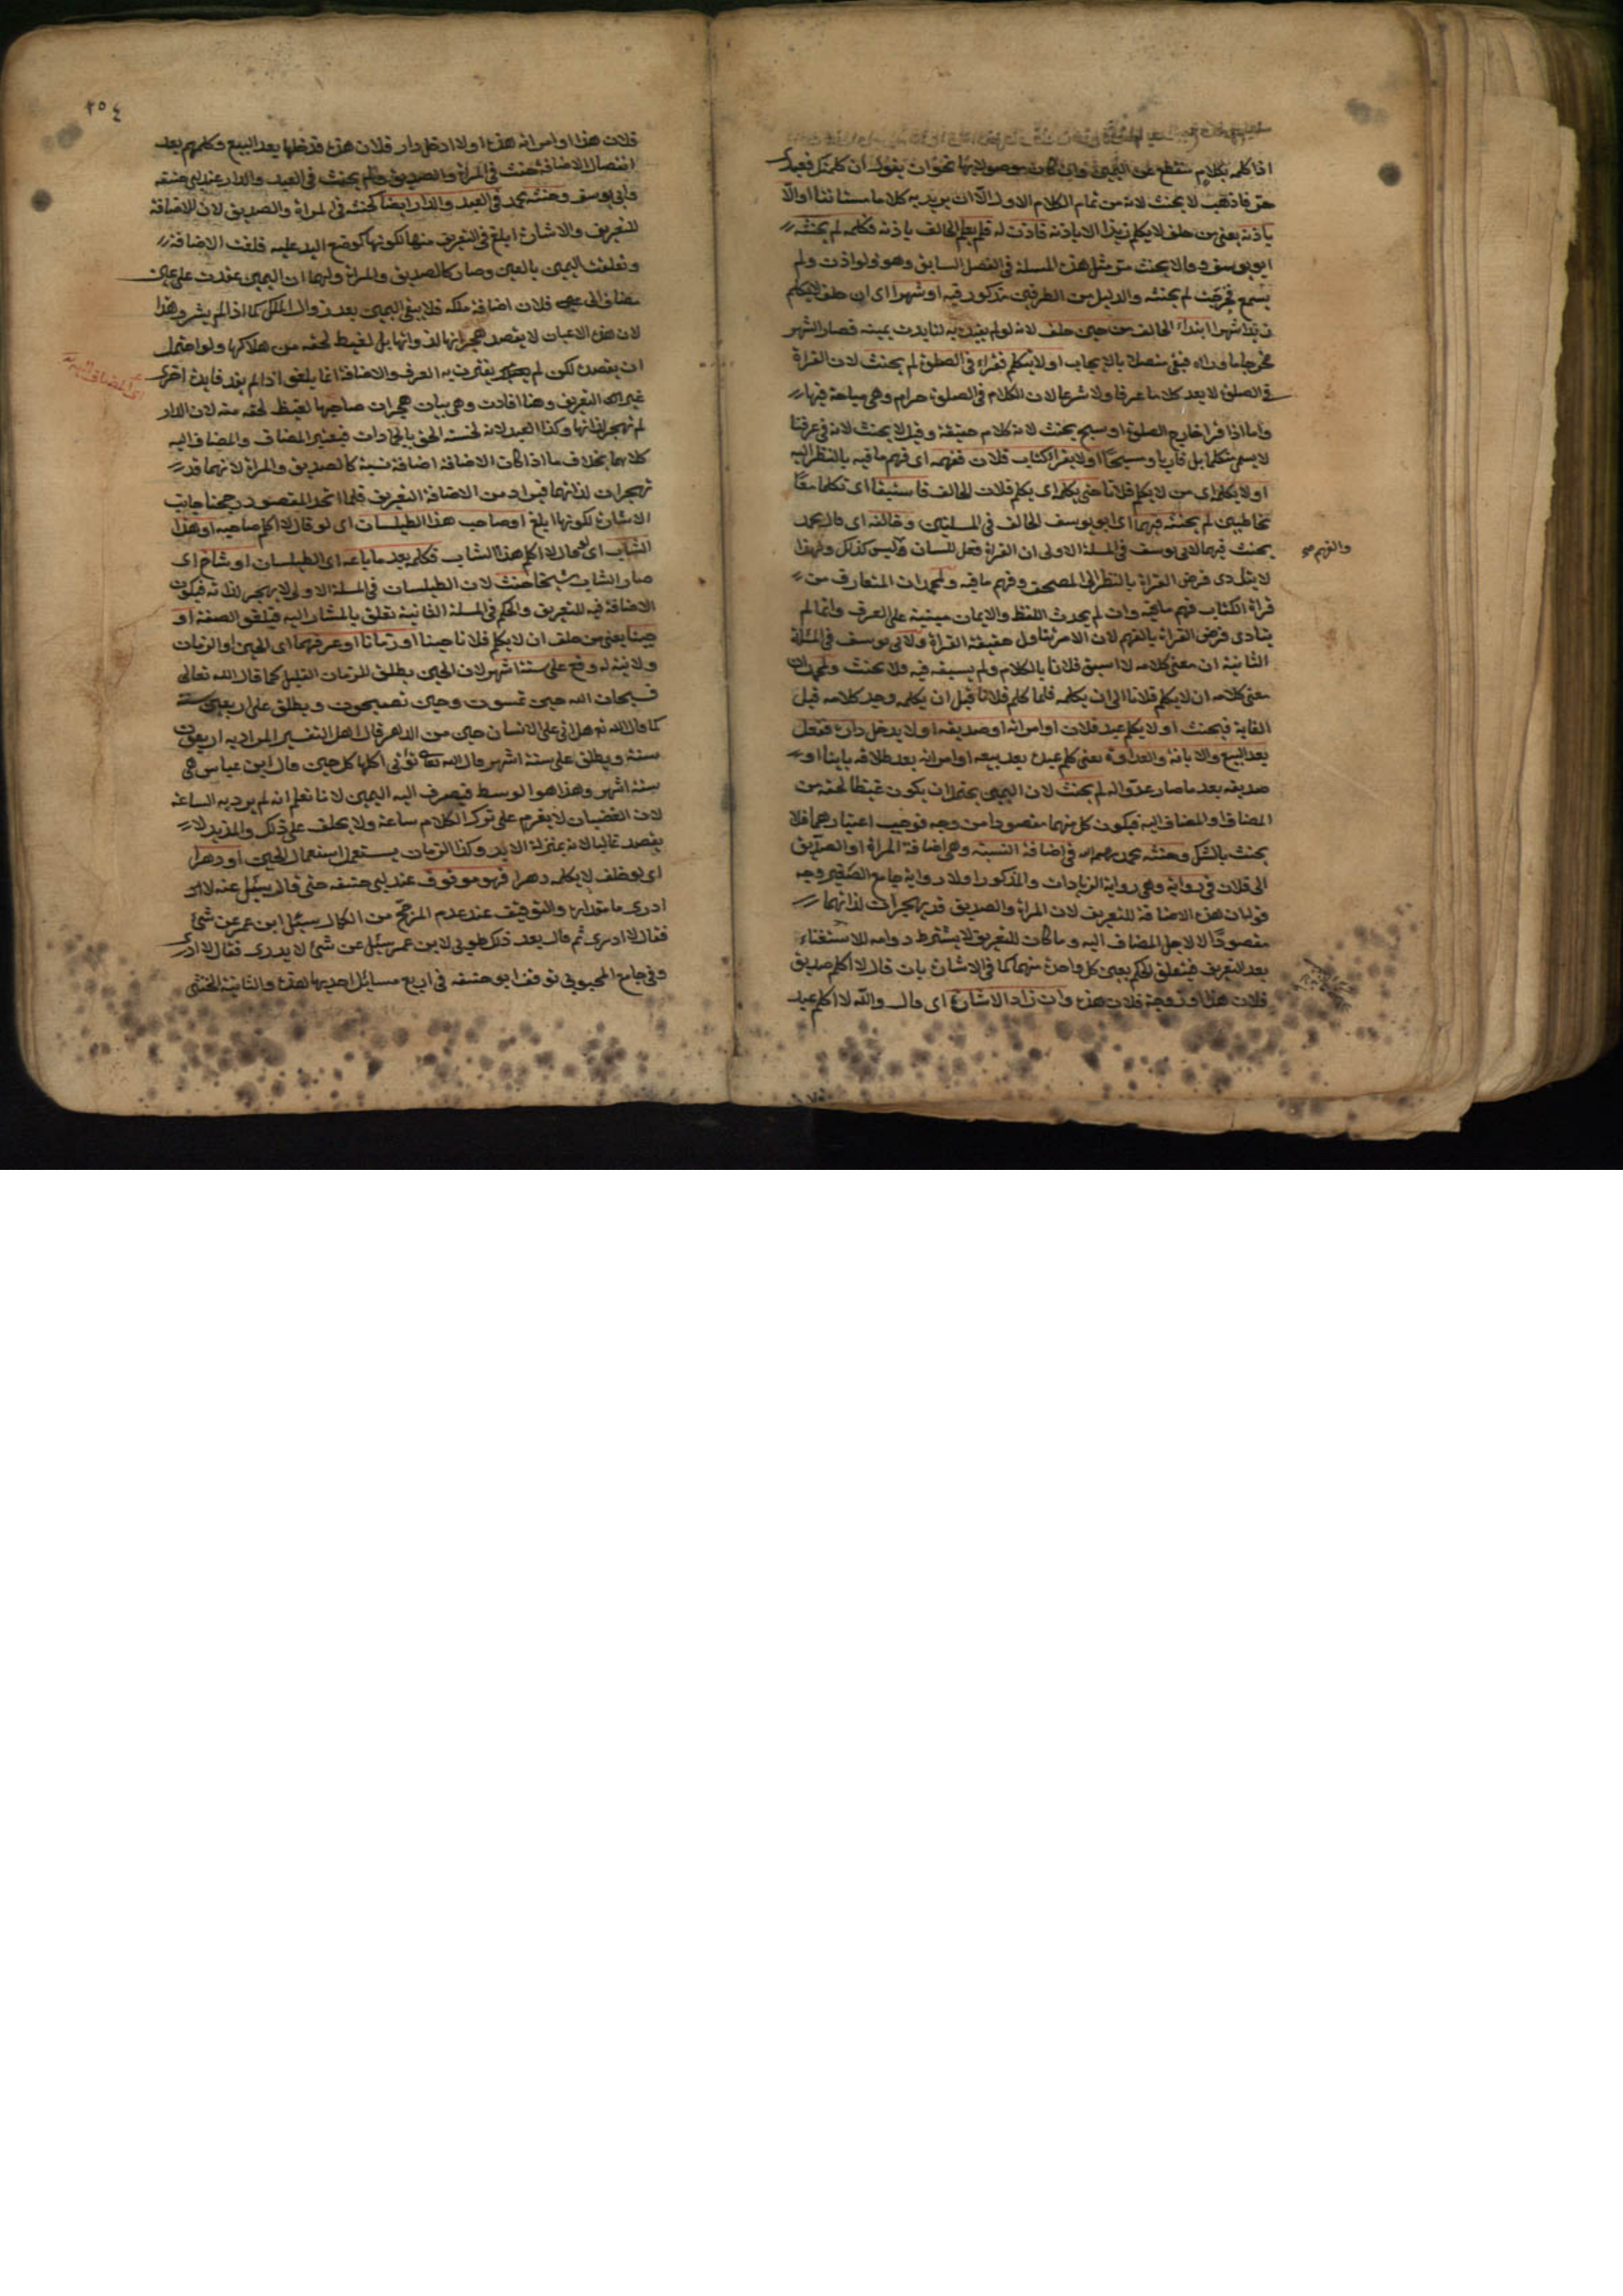 اذا كلمه بكلام منقطع عن اليمين وان كان موصولا بها نحو ان يقول ان كلمتك فعبدى
حر فاذهب لا يحنث لانه من تمام الكلام الاول الا ان يريد به كلاما مستانفا او الا
باذنه يعنى من حلف لا يكلم زيدا الا باذنه فاذن له فلم يعلم الحالف باذنه فكلمه لم يحنثه
ابو يوسف وقالا يحنث مر مثل هذه المسلة فى الفصل السابق وهو ولو اذن ولم
يسمع فخرجت لم يحنثه والدليل من الطرفين مذكور فيه او شهرا اى ان حلف لا يكلم
زيدا شهرا ابتداء الحالف من حين حلف لانه لو لم يقيد به لتابدت يمينه فصار الشهر
مخرجا ما وراه فبقى متصلا بالايجاب او لا يتكلم فقراء فى الصلوة لم يحنث لان القراة
فى الصلوة لا يعد كلاما عرفا ولا شرعا لان الكلام فى الصلوة حرام وهى مباحة فيها
واما اذا قرا خارج الصلوة او سبح يحنث لانه كلام حقيقة وقيل لا يحنث لانه فى عرفنا
لا يسمى متكلما بل قاريا ومسبحا او لا يقرا كتاب فلان ففهمه اى فهم ما فيه بالنظر اليه
او لا يكلم اى من لا يكلم فلانا حتى يكلم اى يكلم فلان الحالف فاستبقا اى تكلما معا
مخاطبين لم يحنثه فيهما اى ابو يوسف الحالف فى المسلتين وخالفه اى قال محمد
يحنث فيهما لابى يوسف فى المسلة الاولى ان القراة فعل اللسان وليس كذلك ولهذا
والفهم صح
لا يتادى فرض القراة بالنظر الى المصحف وفهم ما فيه ولمحمد ان المتعارف من
قراة الكتاب فهم ما فيه وان لم يحدث اللفظ والايمان مبنية على العرف وانما لم
يتادى فرض القراة بالفهم لان الامر يتاول حقيقة القراة ولابى يوسف فى المسلة
الثانية ان معنى كلامه لا اسبق فلانا بالكلام ولم يسبقه فيه فلا يحنث ولمحمد ان
معنى كلامه ان لا يكلم فلانا الى ان يكلمه فلما كلم فلانا قبل ان يكلمه وجد كلامه قبل
الغاية فيحنث او لا يكلم عبد فلان او امراته او صديقه او لا يدخل داره ففعل
بعد البيع والابانة والعداوة يعنى كلم عبده بعد بيعه او امراته بعد طلاقه باينا او
صديقه بعد ما صار عدوا له لم يحنث لان اليمين يحتمل ان يكون غيظا لحقه من
المضاف والمضاف اليه فيكون كل منهما مقصودا من وجه فوجب اعتبارهما فلا
يحنث بالشك وحنثه محمد رحمه الله فى اضافة النسبة وهى اضافة المراة او الصديق
الى فلان فى رواية وهى رواية الزيادات والمذكور اولا رواية جامع الصغير وجه
قوليان هذه الاضافة للتعريف لان المراة والصديق قد يهجران لذاتهما
مقصودا لا لاجل المضاف اليه وما كان للتعريف لا يشترط دوامه للاستغناء
بعد التعريف فيتعلق الحكم بعين كل واحدة منهما كما فى الاشارة بان قال لا اكلم صديق
فلان هذا او زوجة فلان هذه وان زاد الاشارة اى قال والله لا اكلم عبد
٢٥٤
فلان هذا او امراته هذه او لا ادخل دار فلان هذه فدخلها بعد البيع وكلمهم بعد
انفصال الاضافة حنث فى المراة والصديق ولم يحنث فى العبد والدار عند ابى حنيفه
وابى يوسف وحنثه محمد فى العبد والدار ايضا كحنثه فى المراة والصديق لان الاضافة
للتعريف والاشارة ابلغ فى التعريف منها لكونها كوضع اليد عليه فلغت الاضافة
وتعلقت اليمين بالعين وصار كالصديق والمراة ولهما ان اليمين عقدت على عين
مضاف الى فلان اضافة ملكه فلا يبقى اليمين بعد زوال الملك كما اذا لم يشر وهذا
لان هذه الاعيان لا يقصد هجرانها لذواتها بل لغيظ لحقه من ملاكها ولو احتمل
ان يقصده لكن لم يعتبر به العرف والاضافة انما يلغو اذا لم يفد فايدة اخرى
اى المضاف اليه
غير التعريف وهنا افادت وهى بيان هجران صاحبها لغيظ لحقه منه لان الدار
لم تهجر لذاتها وكذا العبد لانه لخسته الحق بالجمادات فيعتبر المضاف والمضاف اليه
كلاهما بخلاف ما اذا كان الاضافة اضافة نسبة كالصديق والمراة لانهما قد
تهجران لذاتهما فيراد من الاضافة التعريف فلما اتحد المقصود رجحنا جانب
الاشارة لكونها ابلغ او صاحب هذا الطيلسان اى لو قال لا اكلم صاحبه او هذا
الشاب اى لو قال لا اكلم هذا الشاب فكلمه بعد ما باعه اى الطيلسان او شاخ اى
صار الشاب شيخا حنث لان الطيلسان فى المسلة الاولى لا يهجر لذاته فيكون
الاضافة فيه للتعريف والحكم فى المسلة الثانية تعلق بالمشار اليه فيلغو الصفة او
حينا يعنى من حلف ان لا يكلم فلانا حينا او زمانا او عرفهما اى الحين والزمان
ولا نية له وقع على ستة اشهر لان الحين يطلق للزمان القليل كما قال الله تعالى
فسبحان الله حين تمسون وحين تصبحون ويطلق على اربعين سنة
كما قال الله تع هل اتى على الانسان حين من الدهر قال اهل التفسير المراد به اربعون
سنة ويطلق على ستة اشهر قال الله تعالى تؤتى اكلها كل حين قال ابن عباس هى
ستة اشهر وهذا هو الوسط فيصرف اليه اليمين لانا نعلم انه لم يرد به الساعة
لان الغضبان لا يعزم على ترك الكلام ساعة ولا يحلف على ذلك والمديد لا
يقصد غالبا لانه بمنزلة الابد وكذا الزمان يستعمل استعمال الحين او دهرا
اى لو حلف لا يكلمه دهرا فهو موقوف عند ابى حنيفه حتى قال يسئل عنه لا
ادرى ما مقداره والتوقيف عند عدم المرجح من الكمال سئل ابن عمر عن شئ
فقال لا ادرى ثم قال بعد ذلك طوبى لابن عمر سئل عن شئ لا يدرى فقال لا ادرى
وفى جامع المحبوبى توقف ابو حنيفه فى اربع مسائل احديها هذه والثانية الخنثى